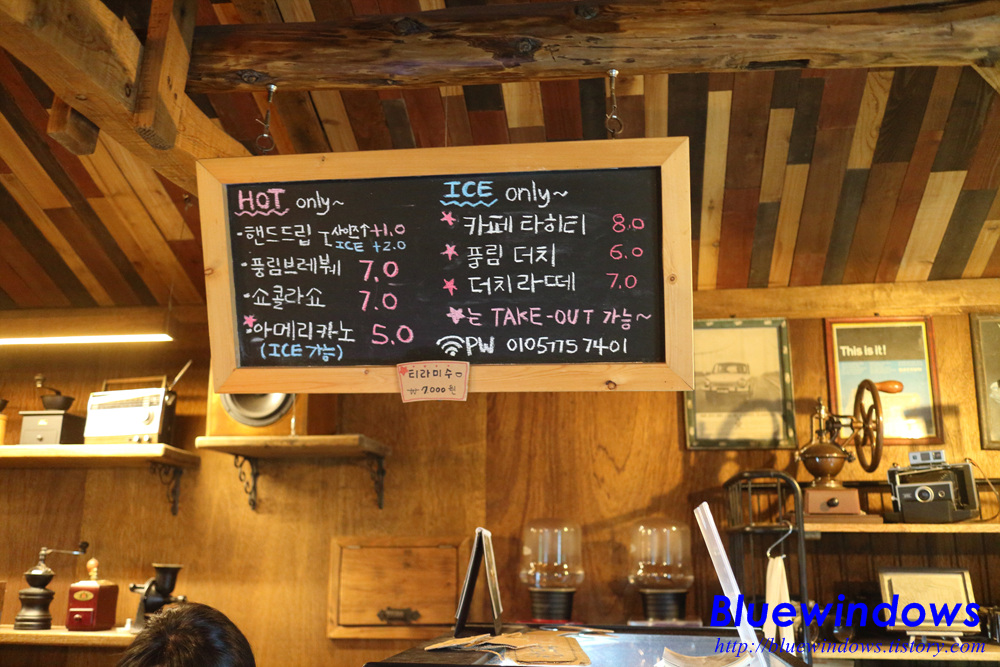 HOT only~
·핸드드립 사이즈↑+1.0
ICE +2.0
·풍림브레붸 7.0
·쇼콜라쇼 7.0
·아메리카노 5.0
(ICE 가능)
ICE only~
★ 카페 타히티 8.0
★ 풍림 더치 6.0
★ 더치라떼 7.0
★는 TAKE-OUT 가능~
PW 01057757401
티라미수
7000원
This is it!
Bluewindows
http://bluewindows.tistory.com